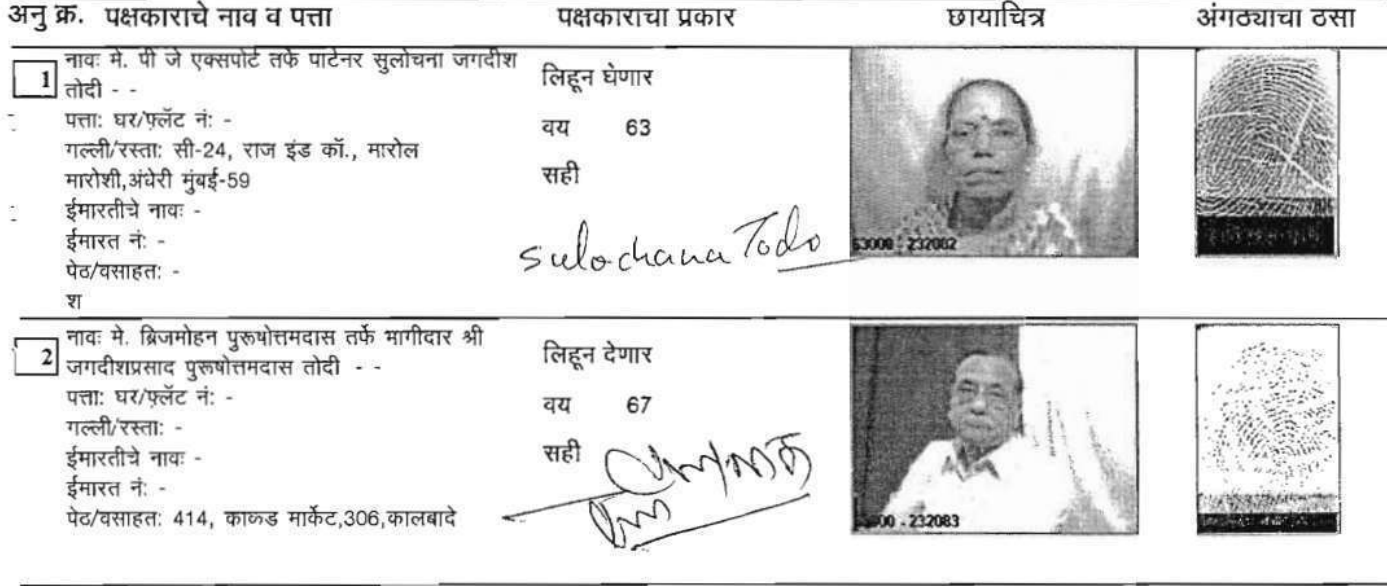 अनु क्र. पक्षकाराचे नाव व पत्ता पक्षकाराचा प्रकार छायाचित्र अंगठ्याचा ठसा
1
नावः मे. पी जे एक्सपोर्ट तर्फे पाटेनर सुलोचना जगदीश
तोदी - -
पत्ताः घर/फ्लॅट नंः -
गल्ली/रस्ताः सी-24, राज इंड कॉ., मारोल
मारोशी,अंधेरी मुंबई-59
ईमारतीचे नावः -
ईमारत नंः -
पेठ/वसाहतः -
श
लिहून घेणार
वय 63
सही
Sulochana Todo
63000 - 232082
2
नावः मे. ब्रिजमोहन पुरूषोत्तमदास तर्फे भागीदार श्री
जगदीशप्रसाद पुरूषोत्तमदास तोदी - -
पत्ताः घर/फ्लॅट नंः -
गल्ली/रस्ताः -
ईमारतीचे नावः -
ईमारत नंः -
पेठ/वसाहतः 414, काळड मार्केट,306,कालबादे
लिहून देणार
वय 67
सही
- 232083